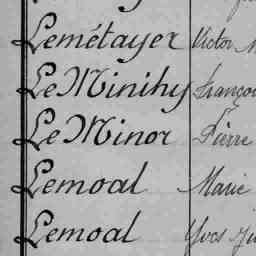 Lemétayer Victor
Le Minihy François
Le Minor Pierre
Lemoal Marie
Lemoal Yves